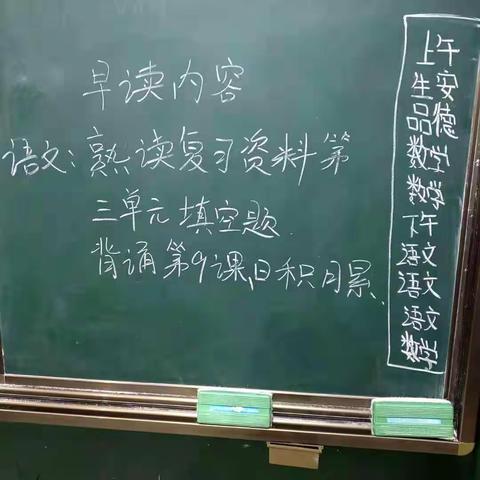 早读内容
语文：熟读复习资料第
三单元填空题.
背诵第9课,日积月累.
上午
生安
品德
数学
数学
下午
语文
语文
语文
数学